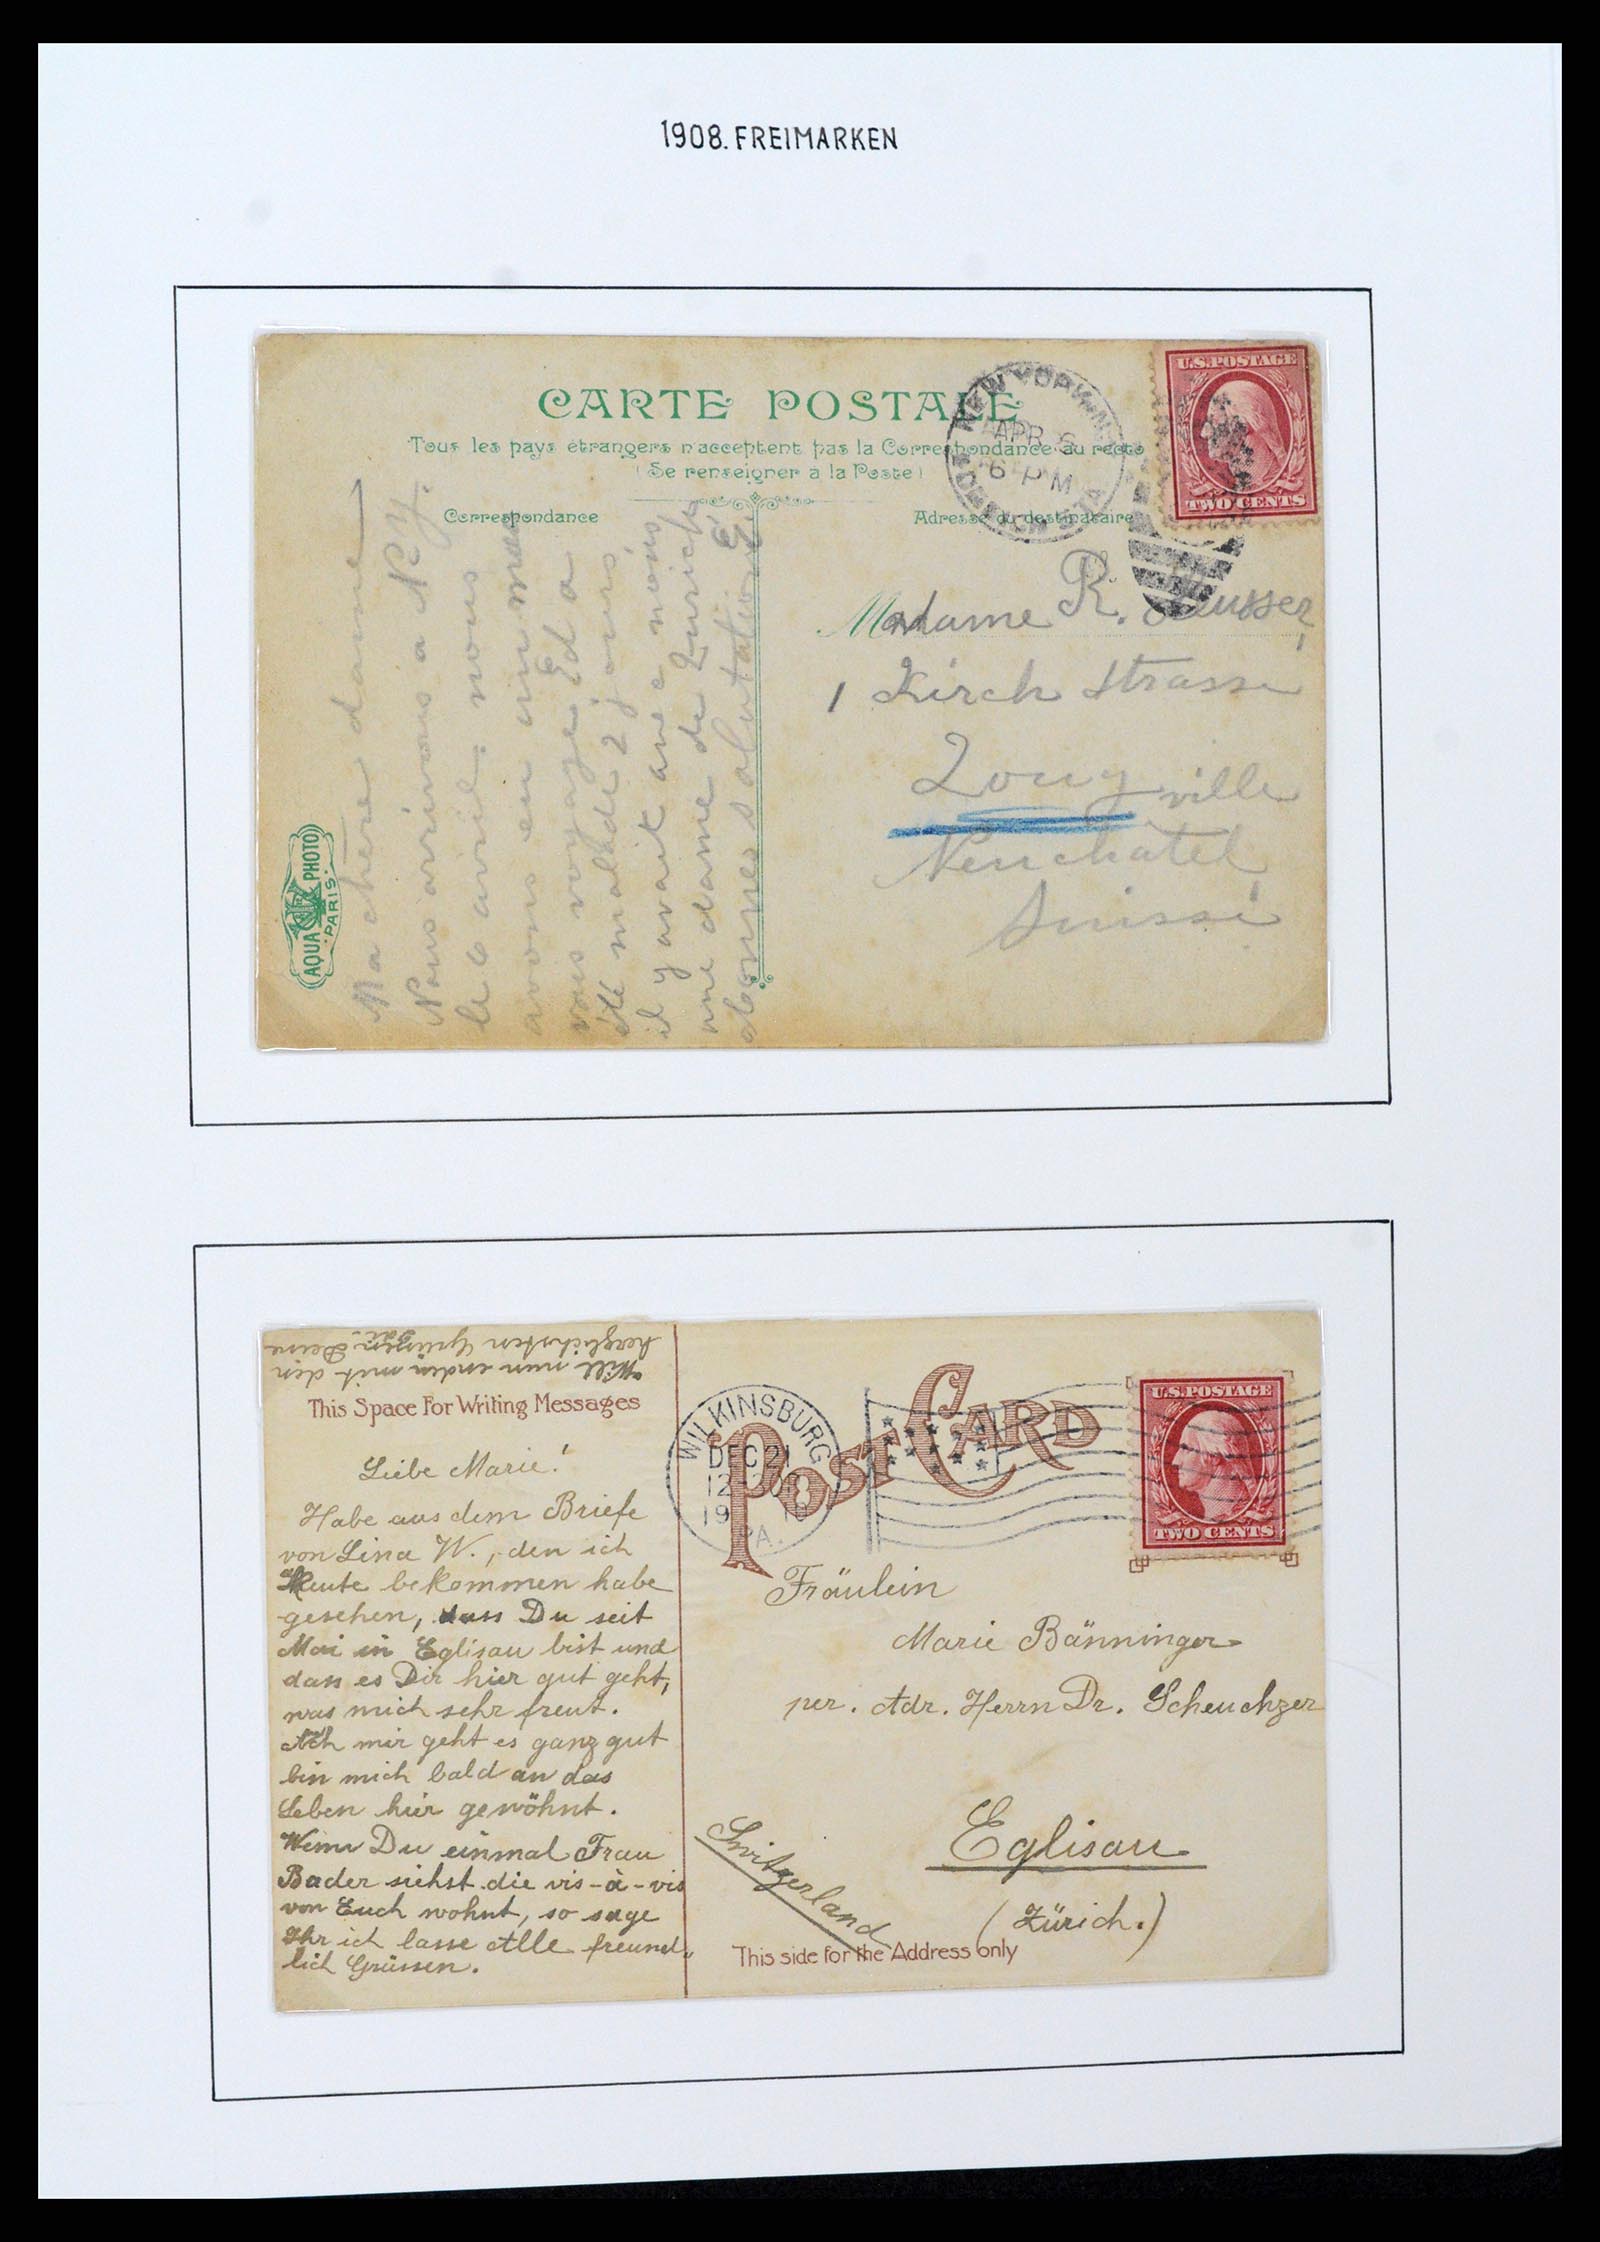 1908. FREIMARKEN
CARTE POSTALE
Tous les pays étrangers n'acceptent pas la Correspondance au recto
(Se renseigner à la Poste)
Correspondance
Adresse du destinataire
NEW YORK, N.Y.
APR 6
6 PM
U.S. POSTAGE
TWO CENTS
Ma chère dame
Nous arrivons a N Y.
le 6 avril. nous
avons eu un
voyage Ed a
été malade 2 jours
il y avait avec nous
une dame de Zurich
bonnes salutations
AQUA PHOTO
PARIS
Madame R.
1 Kirch Strasse
Zoug ville
Neuchatel
Suisse
Will nun enden mit den
herzlichsten Grüssen Deine
This Space For Writing Messages
Liebe Marie!
Habe aus dem Briefe
von Lina W., den ich
heute bekommen habe
gesehen, dass Du seit
Mai in Eglisau bist und
dass es Dir hier gut geht,
was mich sehr freut.
Auch mir geht es ganz gut
bin mich bald an das
Leben hier gewöhnt.
Wenn Du einmal Frau
Bader siehst die vis-à-vis
von Euch wohnt, so sage
Ihr ich lasse Alle freund„
lich Grüssen.
POST CARD
WILKINSBURG
DEC 21
PA.
U.S. POSTAGE
TWO CENTS
Fräulein
Marie Bänninger
per. Adr. Herrn Dr. Scheuchzer
Eglisau
(Zürich.)
Switzerland
This side for the Address only